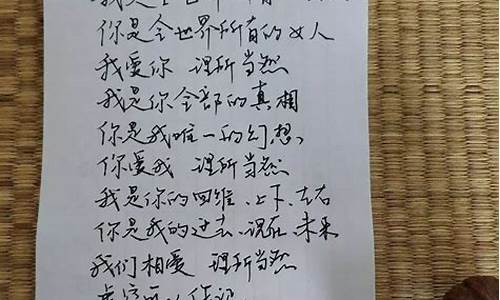 我是全世界所有
你是全世界所有的女人
我爱你 理所当然
我是你全部的真相
你是我唯一的幻想、
你爱我 理所当然
我是你的四维、上下、左右
你是我的过去、现在、未来
我们相爱 理所当然